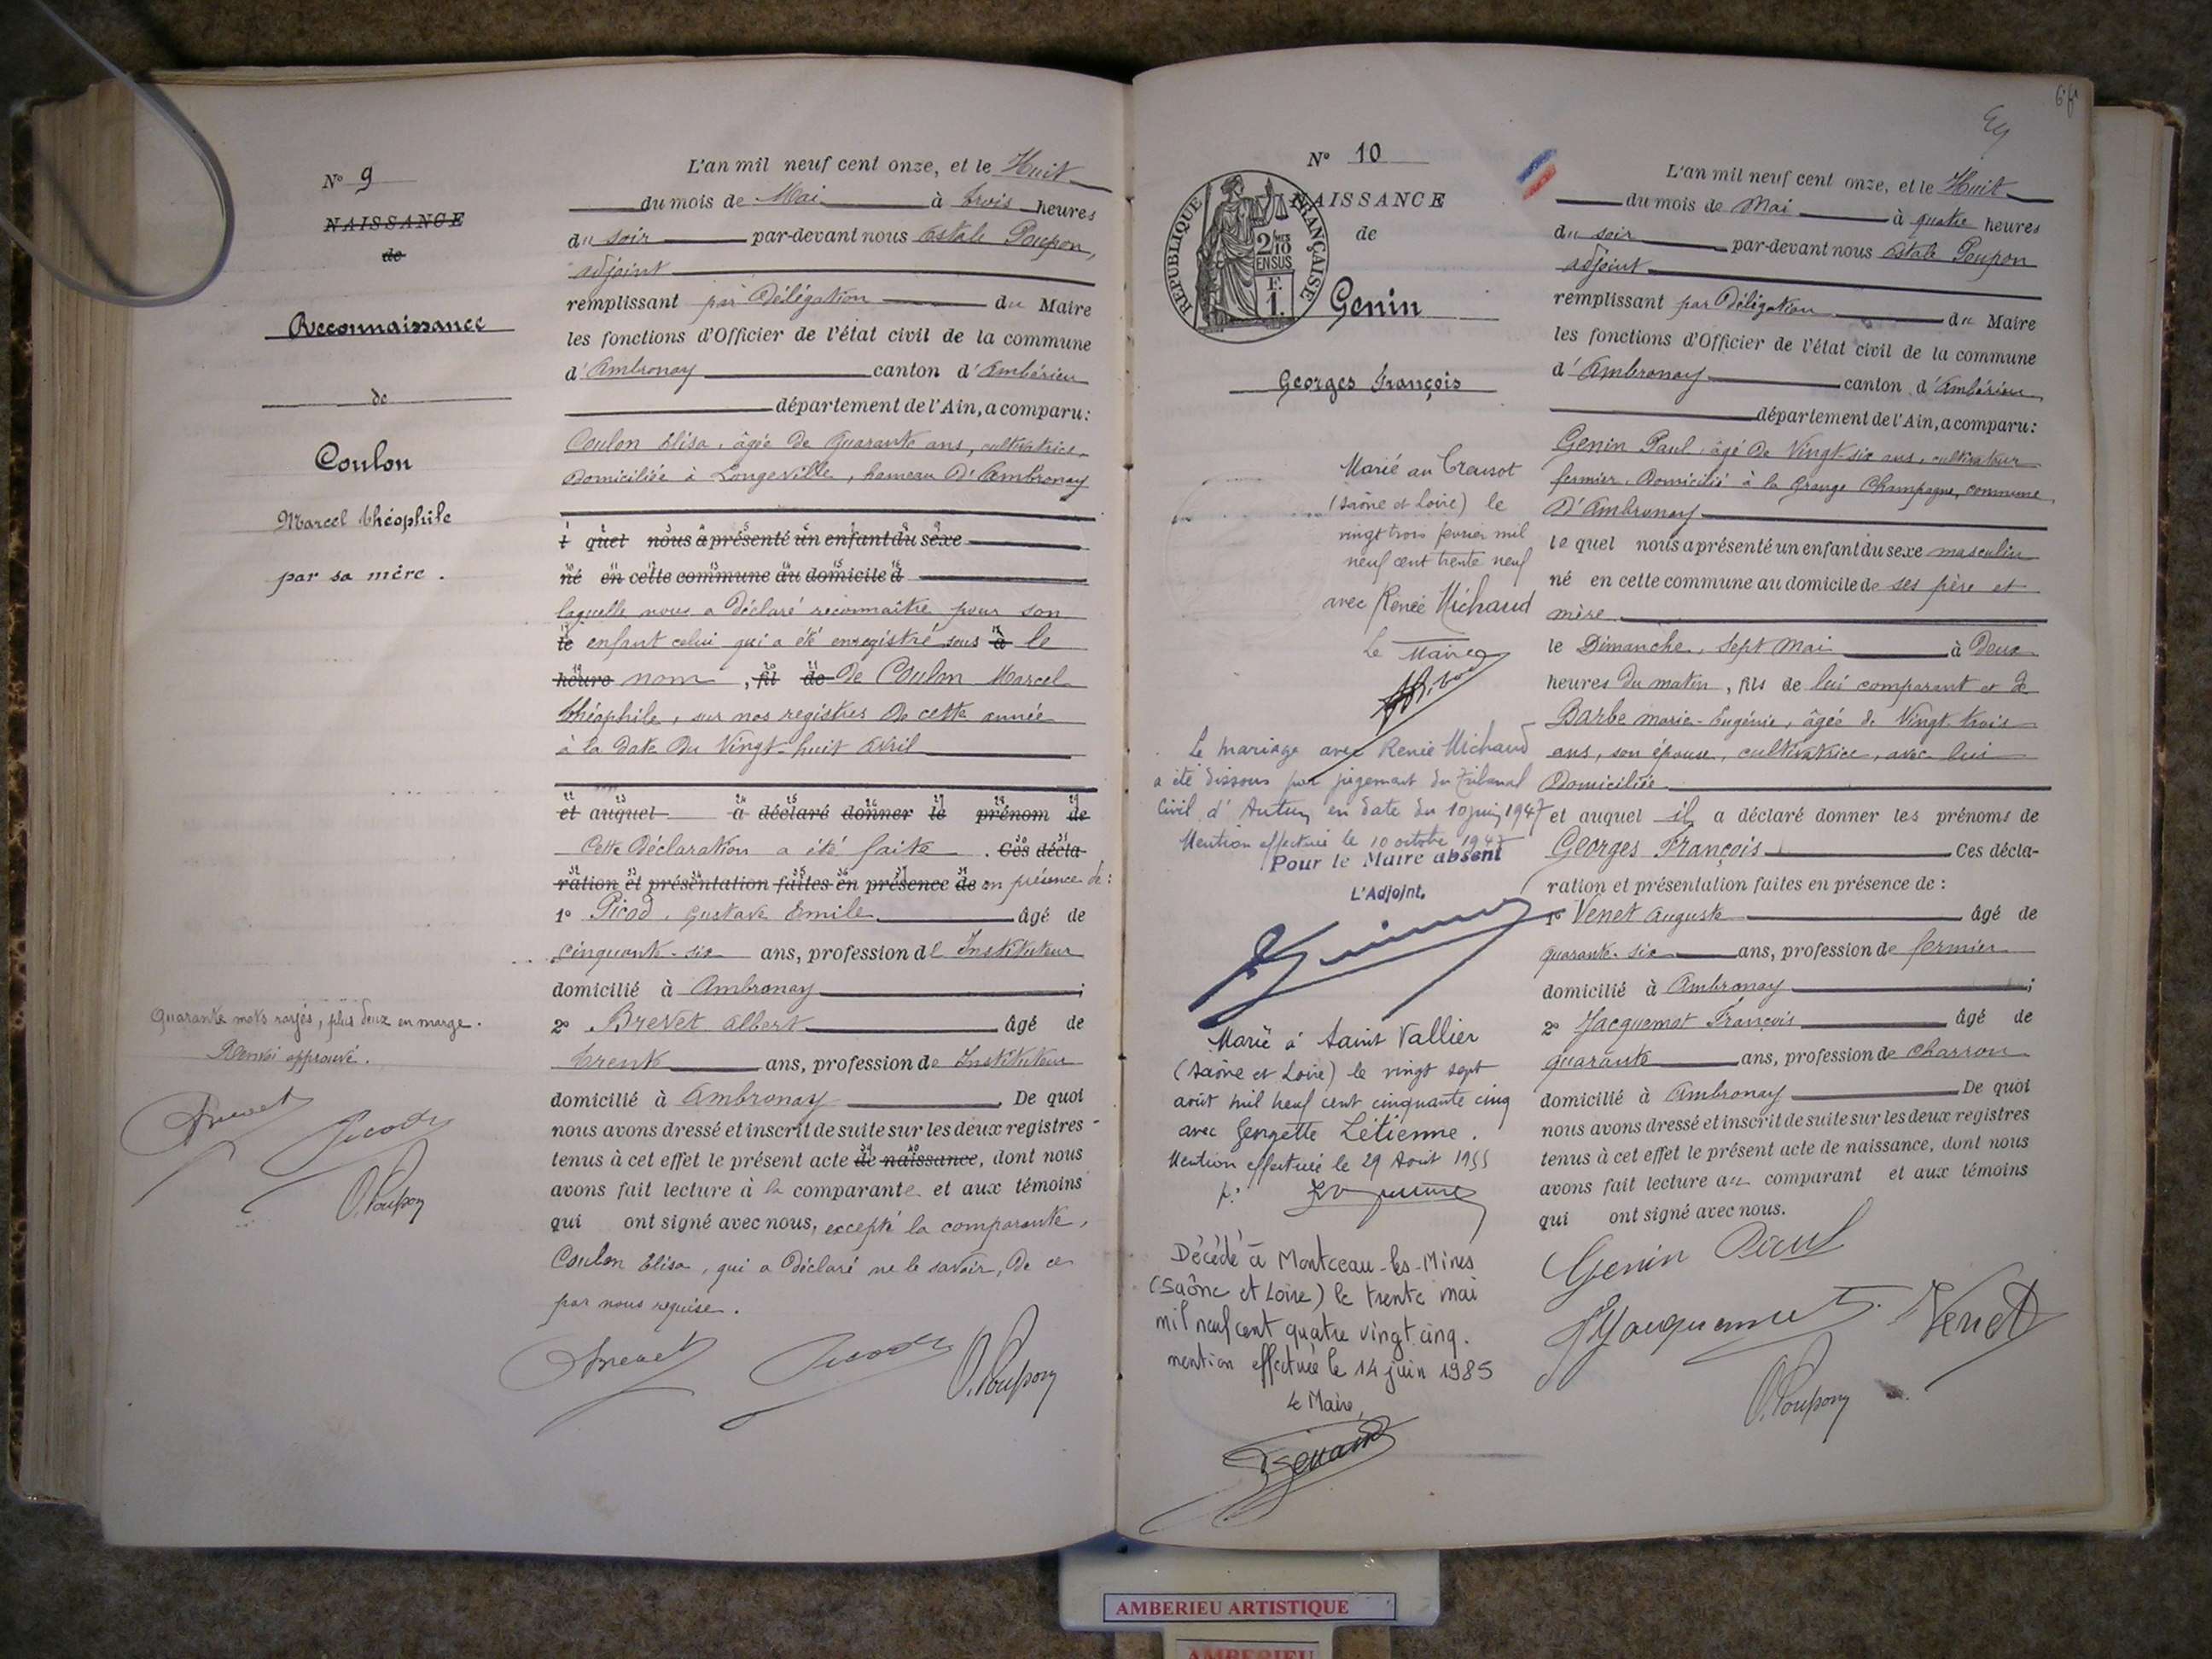 N° 9
NAISSANCE
de
Reconnaissance
de
Coulon
Marcel Théophile
par sa mère.
Quarante mots rayés, plus deux en marge.
Renvoi approuvé.
Brevet
Picod
O. Poupon
L'an mil neuf cent onze, et le Huit
du mois de Mai à trois heures
du soir par-devant nous Poupon,
adjoint
remplissant par Délégation du Maire
les fonctions d'Officier de l'état civil de la commune
d'Ambronay canton d'Ambérieu
département de l'Ain, a comparu:
Coulon Elisa, âgée de Quarante ans, cultivatrice
Domiciliée à Longeville, hameau d'Ambronay
quel nous a présenté un enfant du sexe
né en cette commune au domicile d
laquelle nous a déclaré reconnaître pour son
le enfant celui qui a été enregistré sous à le
heure nom, fil de de Coulon Marcel
Théophile, sur nos registres de cette année
à la date du Vingt-huit avril
et auquel a déclaré donner le prénom de
Cette Déclaration a été faite. Ces décla-
ration et présentation faites en présence de en présence de:
1° Picod, Gustave Emile âgé de
cinquante-six ans, profession de Instituteur
domicilié à Ambronay;
2° Brevet Albert âgé de
trente ans, profession de Instituteur
domicilié à Ambronay. De quoi
nous avons dressé et inscrit de suite sur les deux registres
tenus à cet effet le présent acte de naissance, dont nous
avons fait lecture à la comparante et aux témoins
qui ont signé avec nous, excepté la comparante,
Coulon Elisa, qui a déclaré ne le savoir, de ce
par nous requise.
Brevet Picod O. Poupon
N° 10
NAISSANCE
de
REPUBLIQUE FRANÇAISE
2/10 EN SUS
F. 1.
Genin
Georges François
Marié au Creusot
(Saône et Loire) le
vingt trois février mil
neuf cent trente neuf
avec Renée Michaud
Le Maire
Le mariage avec Renée Michaud
a été dissous par jugement du Tribunal
Civil d'Autun en date du 10 juin 1947
Mention effectuée le 10 octobre 1947
Pour le Maire absent
L'Adjoint,
Marié à Saint Vallier
(Saône et Loire) le vingt sept
août mil neuf cent cinquante cinq
avec Georgette Létienne.
Mention effectuée le 29 Août 1955
Décédé à Montceau-les-Mines
(Saône et Loire) le trente mai
mil neuf cent quatre vingt cinq.
mention effectuée le 14 juin 1985
Le Maire,
L'an mil neuf cent onze, et le Huit
du mois de Mai à quatre heures
du soir par-devant nous Poupon
adjoint
remplissant par Délégation du Maire
les fonctions d'Officier de l'état civil de la commune
d'Ambronay canton d'Ambérieu
département de l'Ain, a comparu:
Genin Paul, âgé de Vingt-six ans, cultivateur
fermier, Domicilié à la Grange Champagne, commune
d'Ambronay
le quel nous a présenté un enfant du sexe masculin
né en cette commune au domicile de ses père et
mère
le Dimanche, sept Mai à Deux
heures du matin, fils de lui comparant et de
Barbe Marie-Eugénie, âgée de Vingt-trois
ans, son épouse, cultivatrice, avec lui
Domiciliée
et auquel il a déclaré donner les prénoms de
Georges François Ces décla-
ration et présentation faites en présence de:
1° Venet Auguste âgé de
quarante-six ans, profession de fermier
domicilié à Ambronay;
2° Jacquemot François âgé de
quarante ans, profession de charron
domicilié à Ambronay De quoi
nous avons dressé et inscrit de suite sur les deux registres
tenus à cet effet le présent acte de naissance, dont nous
avons fait lecture au comparant et aux témoins
qui ont signé avec nous.
Genin Paul
Jacquemot F. Venet
O. Poupon
AMBERIEU ARTISTIQUE
AMBERIEU